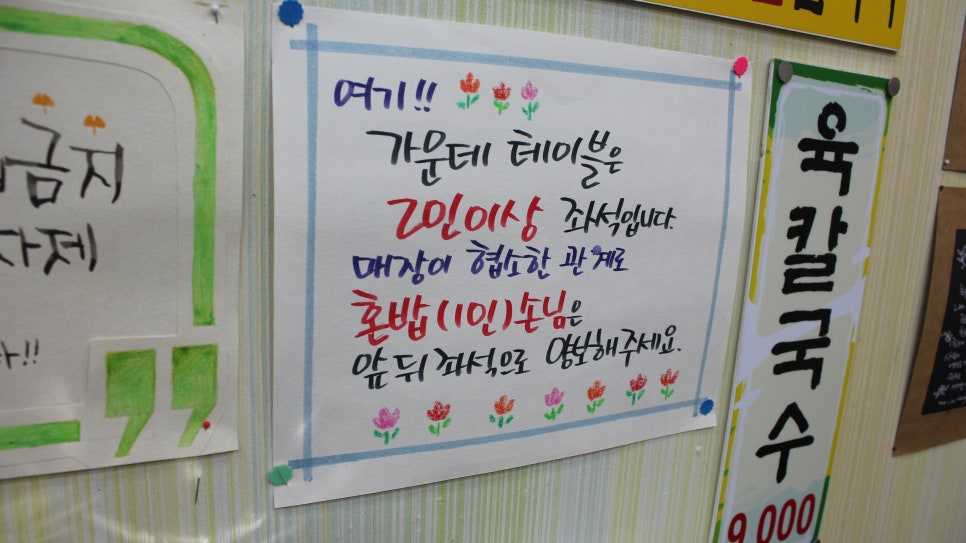 여기!!
가운데 테이블은
2인이상 좌석입니다.
매장이 협소한 관계로
혼밥(1인)손님은
앞 뒤 좌석으로 양보해주세요.
금지
자제
!!
육칼국수
9,000